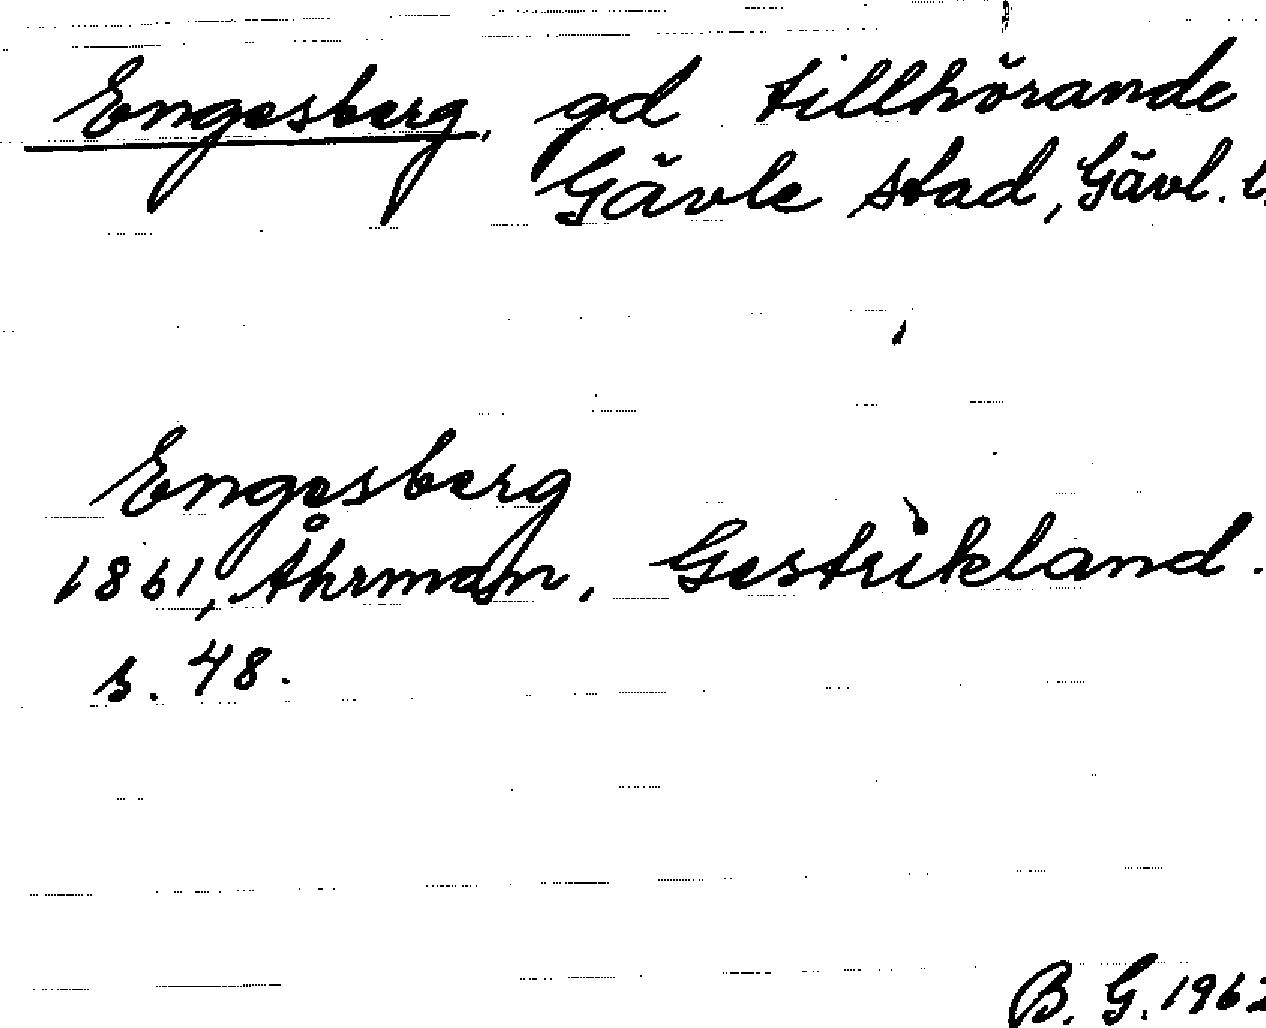 Engesberg, gd tillhörande
Gävle stad, Gävl. l.
Engesberg
1861, Åhrman, Gestrikland.
s. 48.
B. G. 1962